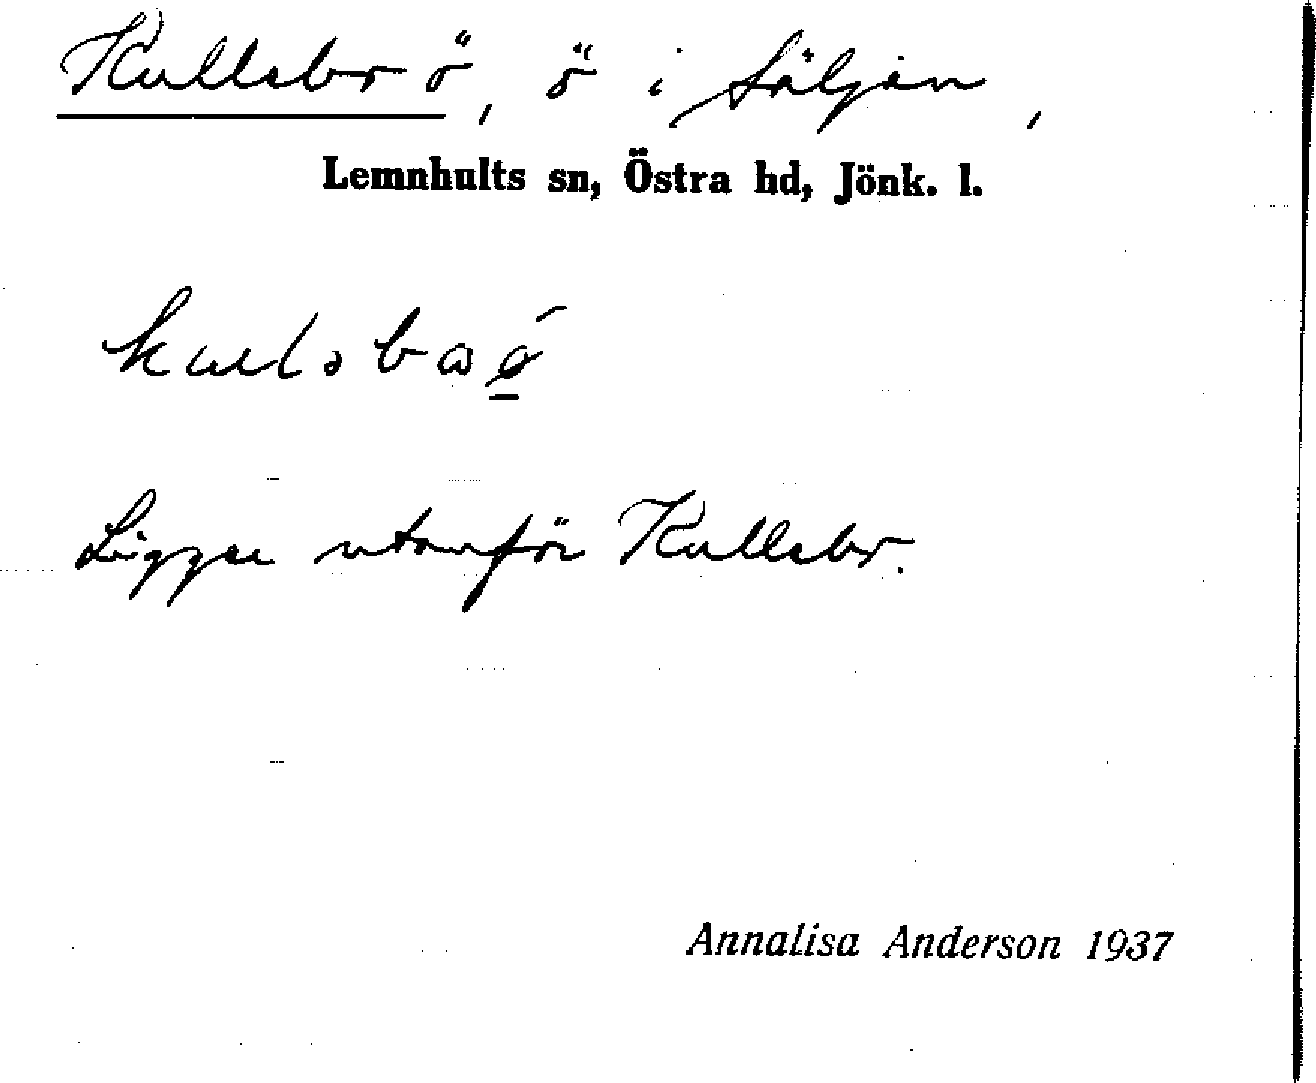 Kullebro ö, ö i Säljen,
Lemnhults sn, Östra hd, Jönk. l.
Ligger utanför Kullebr.
Annalisa Anderson 1937